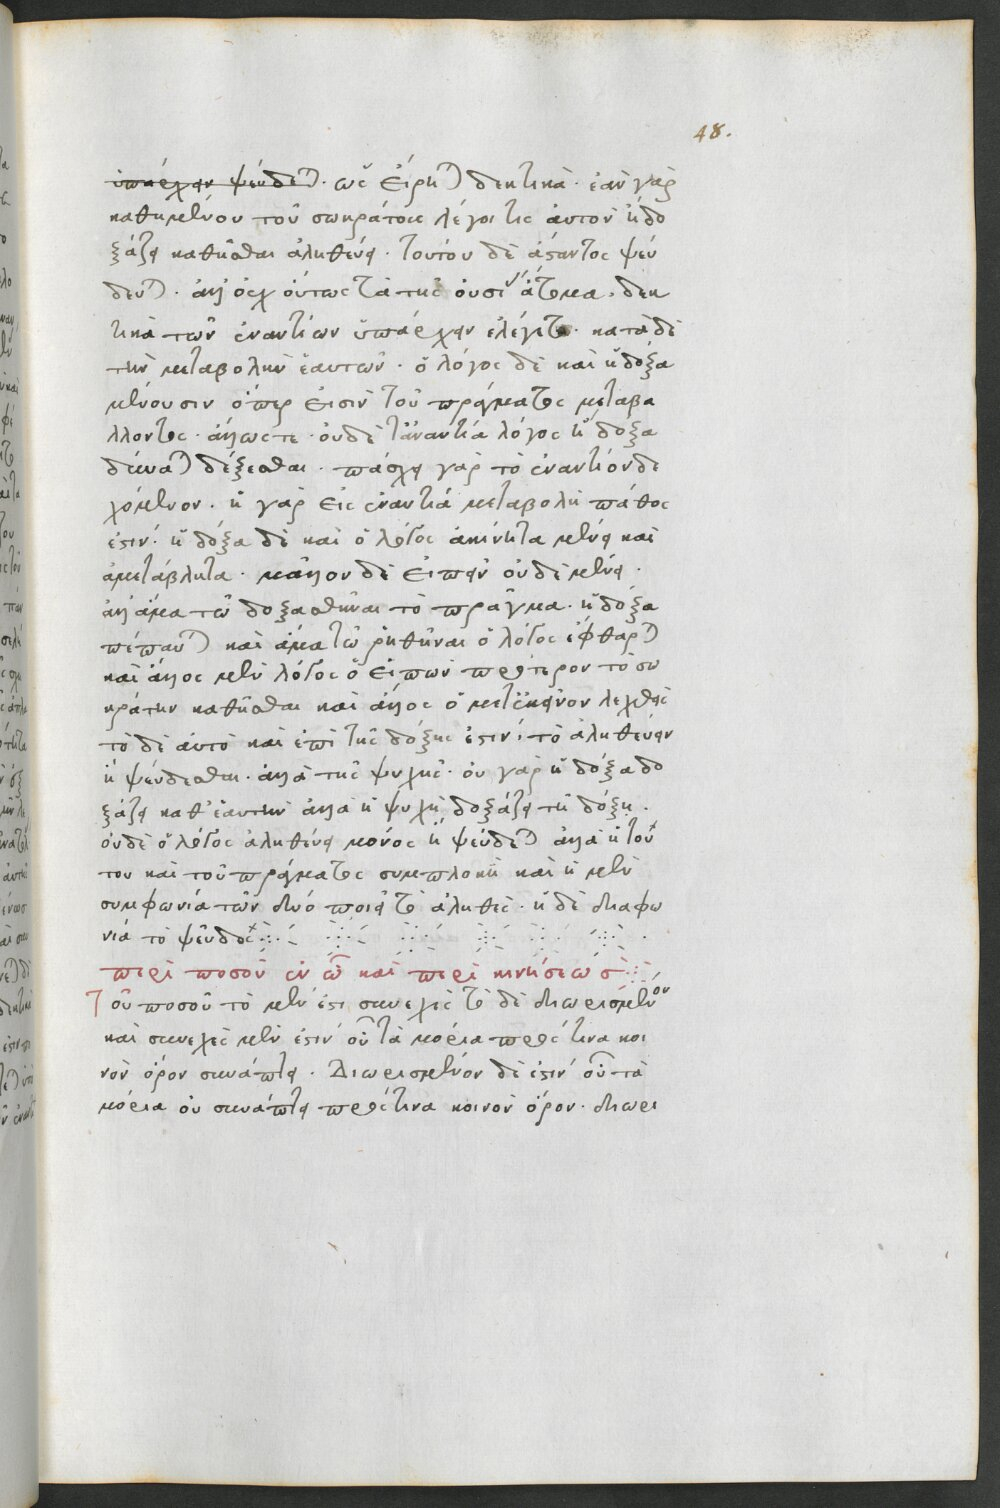 48.
ὑπάρχειν ψεύδε). ὡς εἴρη) δεκτικὰ. ἐὰν γὰρ
καθημένου τοῦ σωκράτους λέγοι τις αὐτὸν ἢ δο
ξάζει καθῆσθαι ἀληθεύει. τούτου δὲ ἀστάντος ψεύ
δε). ἀλλ' οὐχ οὕτως τὰ τῆς οὐσί ἄτομα. δεκ
τικὰ τῶν ἐναντίων ὑπάρχειν ἐλέγετο. κατὰ δὲ
τὴν μεταβολὴν ἑαυτῶν. ὁ λόγος δὲ καὶ ἡ δόξα
μένουσιν ὅπερ εἰσὶν τοῦ πράγματος μεταβα
λλοντος. ἄλλως τε. οὐδὲ τἀναντία λόγος ἢ δόξα
δύνα) δέξεσθαι. πάσχει γὰρ τὸ ἐναντίον δε
χόμενον. ἡ γὰρ εἰς ἐναντία μεταβολὴ πάθος
ἐστίν. ἡ δόξα δὲ καὶ ὁ λόγος ἀκίνητα μένει καὶ
ἀμετάβλητα. μᾶλλον δὲ εἰπεῖν οὐδὲ μένει.
ἀλλ' ἅμα τῶ δοξασθῆναι τὸ πρᾶγμα. ἡ δόξα
πέπαυ) καὶ ἅμα τῶ ῥηθῆναι ὁ λόγος ἔφθαρ)
καὶ ἄλλος μὲν λόγος ὁ εἰπὼν πρότερον τὸ σω
κράτην καθῆσθαι καὶ ἄλλος ὁ μετ' ἐκεῖνον λεχθεὶς
τὸ δὲ αὐτὸ καὶ ἐπὶ τῆς δόξης ἐστίν. τὸ ἀληθεύειν
ἢ ψεύδεσθαι. ἀλλὰ τῆς ψυχῆς. οὐ γὰρ ἡ δόξα δο
ξάζει καθ' ἑαυτὴν ἀλλὰ ἡ ψυχὴ δοξάζει τῆ δόξη.
οὐδὲ ὁ λόγος ἀληθεύει μόνος ἢ ψεύδε) ἀλλὰ ἡ τού
του καὶ τοῦ πράγματος συμπλοκὴ καὶ ἡ μὲν
συμφωνία τῶν δυό ποιεῖ τὸ ἀληθὲς. ἡ δὲ διαφω
νία τὸ ψεῦδος
περὶ ποσοῦ ἐν ᾧ καὶ περὶ κινήσεως
Τοῦ ποσοῦ τὸ μέν ἐστι συνεχὲς τὸ δὲ διωρισμένον
καὶ συνεχὲς μὲν ἐστὶν οὗ τὰ μόρια πρός τινα κοι
νὸν ὅρον συνάπτει. Διωρισμένον δὲ ἐστίν οὗ τὰ
μόρια οὐ συνάπτει πρός τινα κοινὸν ὅρον. διωρι